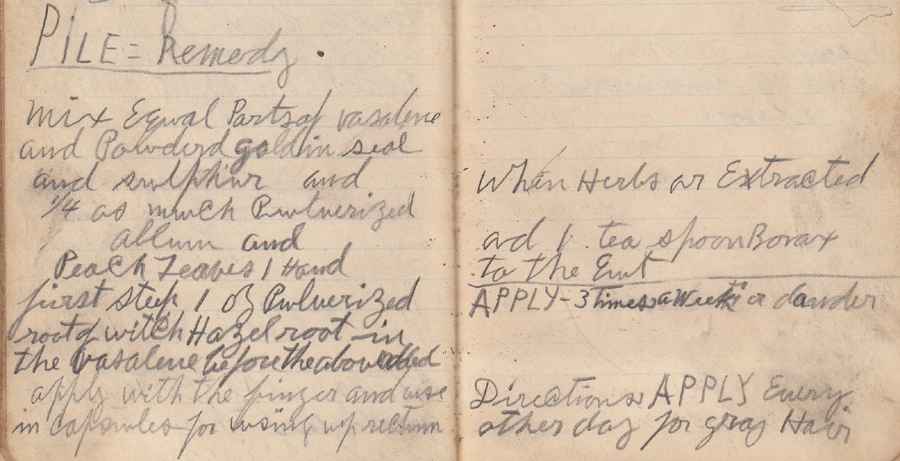 PILE = Remedy.
mix Equal Parts of vasalene
and Powderd goldin seal
and sulphur and
1/4 as much Pulverized
allum and
Peach Leaves 1 Hand
first steep 1 oz Pulverized
root of witch Hazel root in
the vasalene before the above added
apply with the finger and use
in capsules for using up rectum
When Herbs ar Extracted
ad 1 tea spoon Borax
to the
APPLY - 3 Times a Week dander
Directions APPLY Every
other day for gray Hair